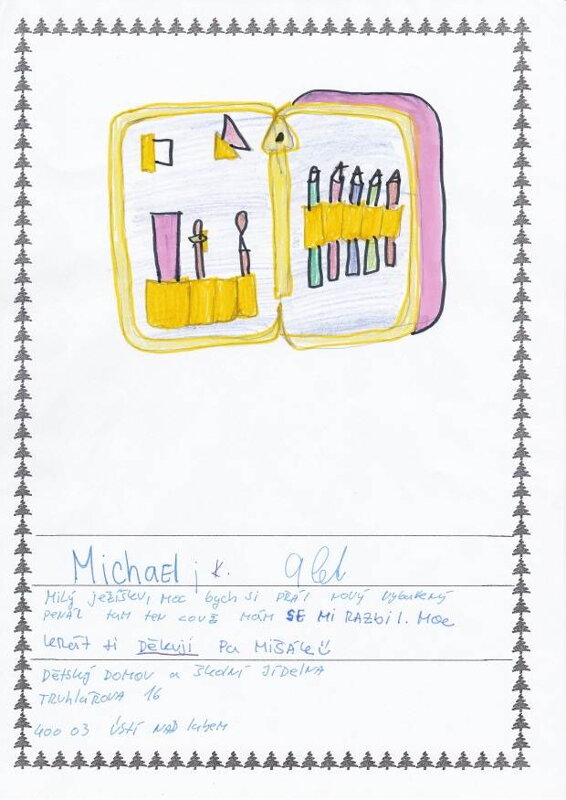 Michael j k. 9 let
Milý ježíšku, moc bych si přál nový vybavený
penál tam ten mám SE Mi RAZBil. Moc
krát ti Děkuji Pa MišáK
DĚTSKÝ DOMOV a Školní JíDELNA
TRUHLÁŘOVA 16
400 03 ÚSTÍ NAD labem